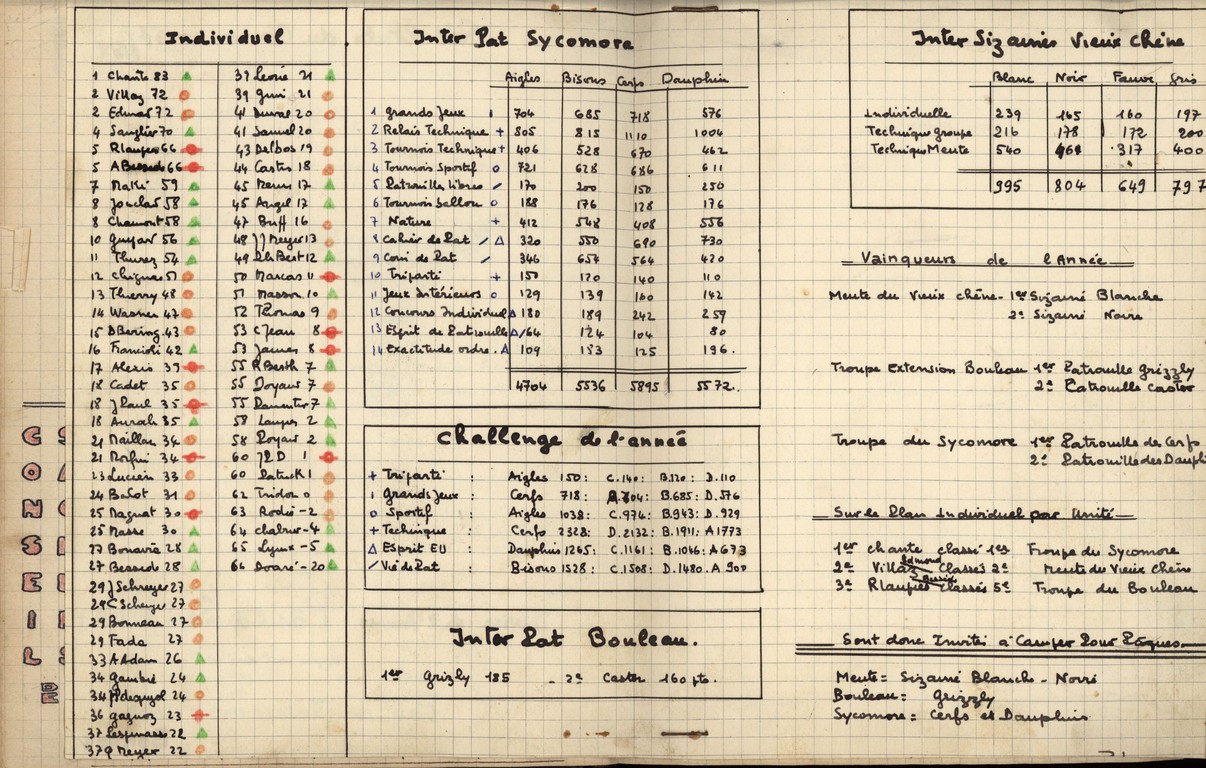 Individuel
1 Chante 83
2 Villaz 72
2 Edmond 72
4 Sanglier 70
5 Rlaupes 66
5 66
7 Maki 59
8 Jouclas 58
8 Chaumont 58
10 Guyar 56
11 Thurez 54
12 Chignas 51
13 Thierry 48
14 Wasner 47
15 D Bering 43
16 Francioli 42
17 Alexis 39
18 Cadet 35
18 J Paul 35
18 Aurah 35
21 Maillac 34
21 Morfin 34
23 Lucien 33
24 Bacot 31
25 Magnat 30
25 Masse 30
27 Bonavia 28
27 Bessods 28
29 J Schreyer 27
29 C Schreyer 27
29 Bonneau 27
29 Fada 27
33 A Adam 26
34 Gambié 24
34 24
36 Gagnoz 23
37 Lespinasse 22
37 Q Meyer 22
39 Leonie 21
39 21
41 Duval 20
41 Samuel 20
43 Delbos 19
44 Castex 18
45 17
45 Angel 17
47 Buff 16
48 JJ Meyer 13
49 Ph Best 12
50 Marcas 11
51 Masson 10
52 Thomas 9
53 C Jean 8
53 James 8
55 R Besth 7
55 Doyaux 7
55 7
58 Laupes 2
58 Royaux 2
60 J2D 1
60 Patrick 1
62 Tridon 0
63 Rodié -2
64 Chabrur -4
65 Lynx -5
66 Doaré -20
Inter Pat Sycomore
Aigles Bisons Cerfs Dauphin
1 Grands Jeux 1 704 685 718 576
2 Relais Technique + 805 815 1110 1004
3 Tournois Technique + 406 528 670 462
4 Tournois Sportif o 721 628 686 611
5 Patrouilles libres / 170 200 150 250
6 Tournois ballon o 188 176 128 176
7 Nature + 412 548 408 556
8 Cahier de Pat / Δ 320 550 690 730
9 Coin de Pat / 346 654 564 420
10 Triparti + 150 120 140 110
11 Jeux Intérieurs o 129 139 160 142
12 Concours Individuel Δ 180 189 242 259
13 Esprit de Patrouille Δ / 64 124 104 80
14 Exactitude ordre. Δ 109 183 125 196.
4704 5536 5895 5572.
Challenge de l'année
+ Triparti : Aigles 150 : C.140 : B.120 : D.110
1 Grands Jeux : Cerfs 718 : A.704 : B.685 : D.576
o Sportif : Aigles 1038 : C.974 : B.943 : D.929
+ Technique : Cerfs 2328 : D.2132 : B.1911 : A 1773
Δ Esprit EU : Dauphins 1265 : C.1161 : B.1046 : A 673
/ Vie de Pat : Bisons 1528 : C.1508 : D.1480. A 900
Inter Pat Bouleau.
1er Grizly 185 - 2e Castor 160 pts.
Inter Sizaines Vieux Chêne
Blanc Noir Fauve Gris
Individuelle 239 165 160 197
Technique groupe 216 178 172 200
Technique Meute 540 461 317 400
995 804 649 797
Vainqueurs de l'Année
Meute du Vieux chêne - 1er Sizaine Blanche
2e Sizaine Noire
Troupe Extension Bouleau 1er Patrouille Grizzly
2e Patrouille Castor
Troupe du Sycomore 1er Patrouille des Cerfs
2e Patrouille des Dauphi
Sur le Plan Individuel par Unité
1er Chante classé 1er Troupe du Sycomore
Edmond
2e Villaz Classés 2e Meute du Vieux Chêne
3e Rlaupes Classés 5e Troupe du Bouleau
Sont donc Invités à Camper Pour Pâques
Meute = Sizaine Blanche - Noire
Bouleau = Grizzly
Sycomore = Cerfs et Dauphins
C
O
N
S
E
I
L
S
DE